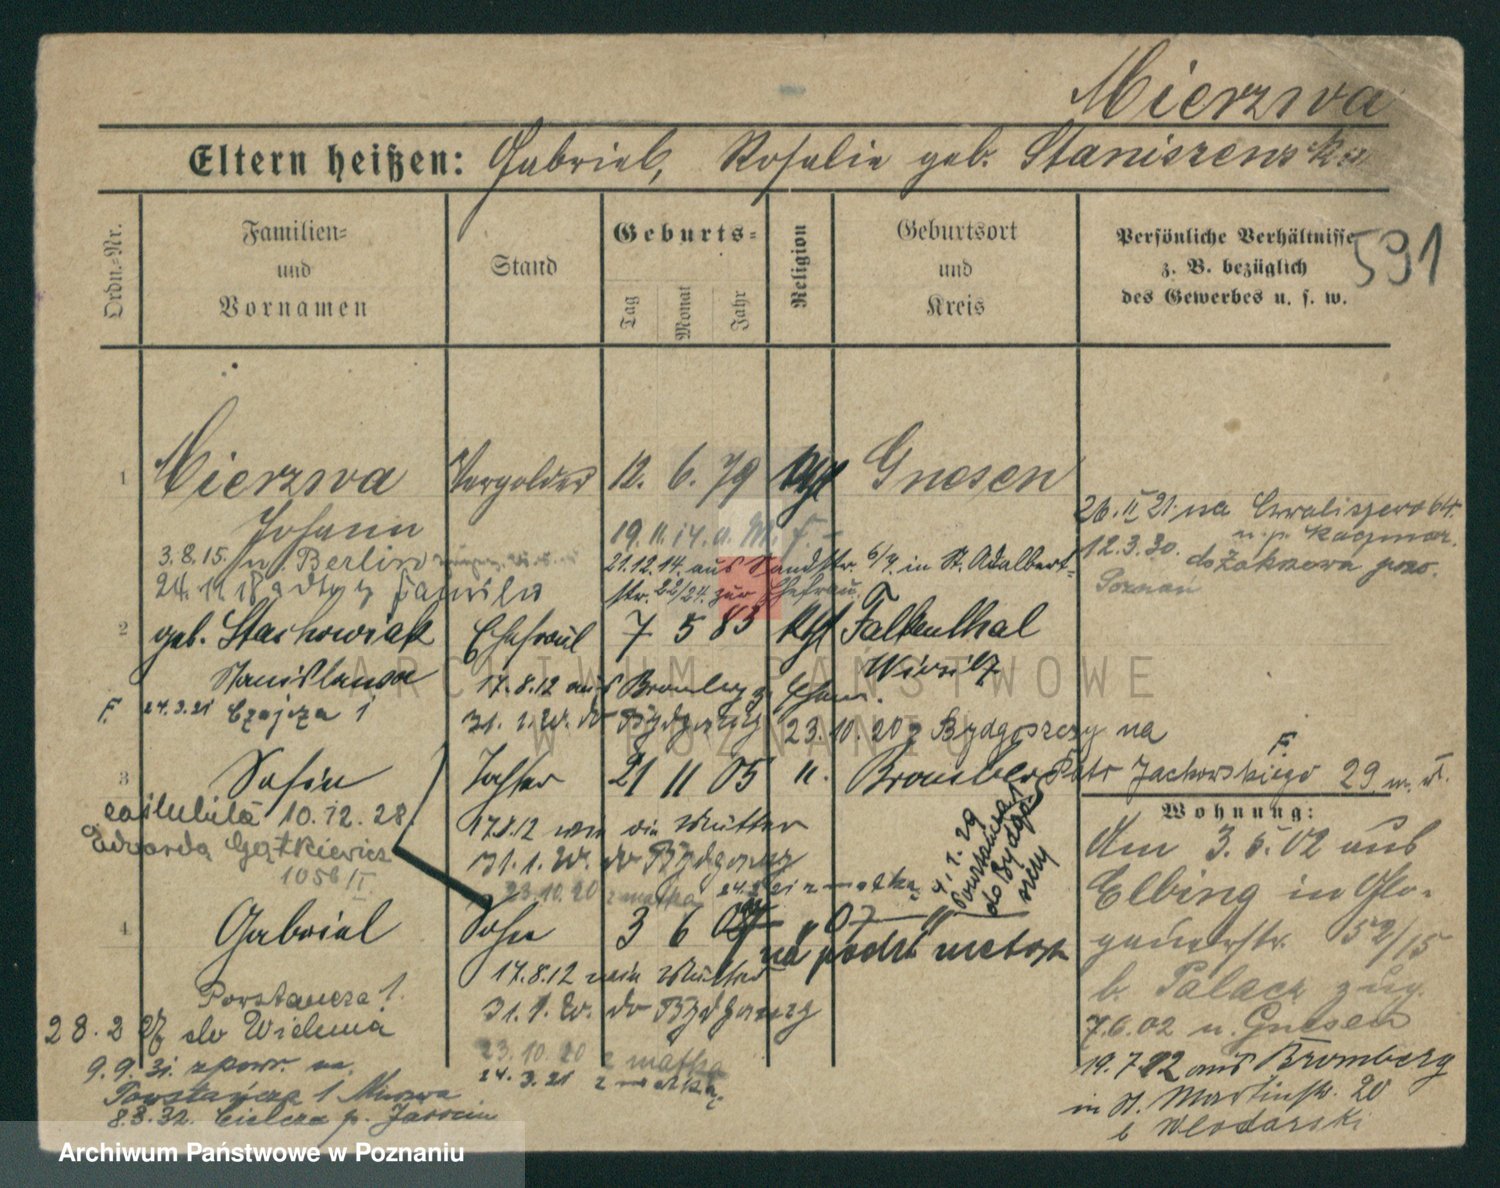 Mierzwa
Eltern heißen: Gabriel, Rosalie geb. Staniszewska
591
Ordn.-Nr.
Familien- und Vornamen
Stand
Geburts-
Tag Monat Jahr
Religion
Geburtsort und Kreis
Persönliche Verhältnisse z. B. bezüglich des Gewerbes u. s. w.
1 Mierzwa Vergolder 12. 6. 79 kth Gnesen
Johann
19.11.14. a. M. F.
3.8.15. n Berlin
21.12.14. aus Sandstr. 6/7. in St. Adalbert-
str. 22/24. zur Ehefrau.
24.11.18
26.II 21. na Chwaliszewo 64.
u. p. Kaczmar.
12.3.30. do Żakowa pow.
Poznań
2 geb. Stachowiak Ehefrau 7 5 83 kth Falkenthal
Stanislawa Wirsitz
17.8.12 aus Bromberg z. Ehem.
F. 24.3.21 Czajcza 1
31.1.20. do Bydgoszczy
23.10.20 z Bydgoszczy na
F.
Piotr Jackowskiego 29 m.
3 Sofie Tochter 21 11 05 " Bromberg
zaślubiła 10.12.28
Edwarda Gątkiewicz
1056 II
17.8.12 wie die Mutter
31.1.20. do Bydgoszcz
23.10.20 z matką 24.3.21 z matką
4.1.29
Powstańcza 1
do Bydgo-
szczy
4 Gabriel Sohn 3 6 07 " 07 "
na podst metryk
17.8.12 wie Mutter
31.1.20. do Bydgoszczy
23.10.20 z matką
24.3.21 z matką
Powstańcza 1.
28.2 27 do Wielunia
9.9.31. z pow. na
Powstańcza 1
8.3.32. Cielcza p. Jarocin
Wohnung:
Am 3.5.02 aus
Elbing in Glo-
gauerstr. 52/15
b. Palacz zug.
7.6.02 n. Gnesen
19.7.12 aus Bromberg
in St. Martinstr. 20
b Wlodarski
ARCHIWUM PAŃSTWOWE
W POZNANIU
Archiwum Państwowe w Poznaniu